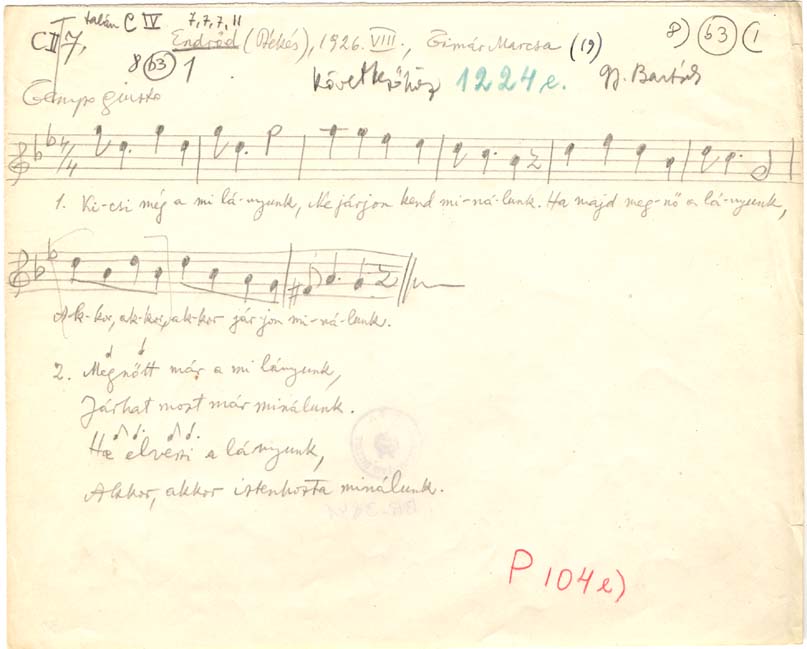 talán C IV 7, 7, 7, 11
C II 7, Endrőd (Békés), 1926. VIII., Timár Marcsa (19) 8) b3 1
8 b3 1
következőhöz 1224 e. gy. Bartók
Tempo giusto
4/4
1. Ki-csi még a mi lá-nyunk, Ne járjon kend mi-ná-lunk. Ha majd meg-nő a lá-nyunk,
Ak-kor, ak-kor, ak-kor jár-jon mi-ná-lunk.
2. Megnőtt már a mi lányunk,
Járhat most már minálunk.
Ha elveszi a lányunk,
Akkor, akkor istenhozta minálunk.
P 104 e)